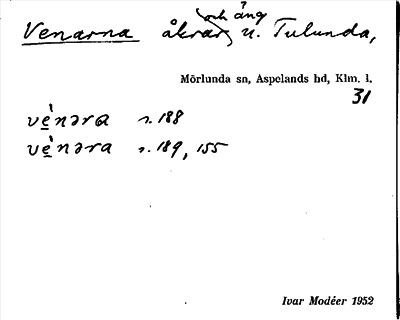 Venarna åkrar och äng u. Tulunda,
Mörlunda sn, Aspelands hd, Klm. l.
31
vènəra s. 188
vènəra s. 189, 155
Ivar Modéer 1952